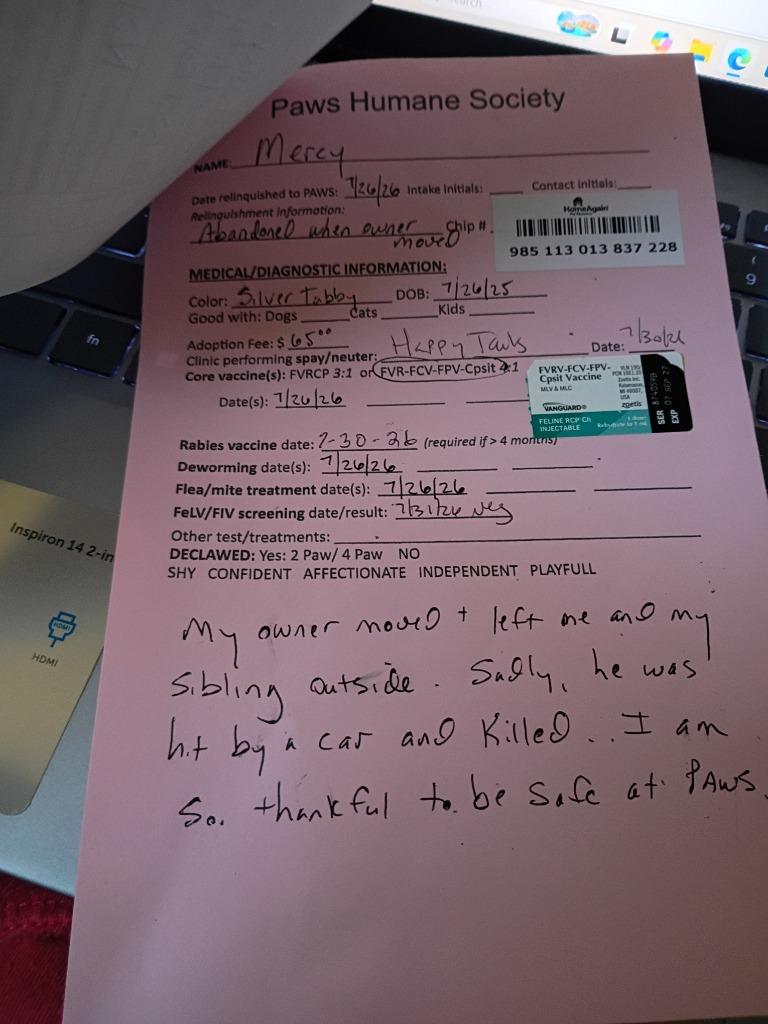 Search
Paws Humane Society
NAME: Mercy
Date relinquished to PAWS: 7/26/26 Intake Initials: Contact initials:
Relinquishment information:
Abandoned when owner moved Chip #
HomeAgain
985 113 013 837 228
MEDICAL/DIAGNOSTIC INFORMATION:
Color: Silver Tabby DOB: 7/26/25
Good with: Dogs Cats Kids
Adoption Fee: $ 65⁰⁰
Clinic performing spay/neuter: Happy Tails Date: 7/30/26
Core vaccine(s): FVRCP 3:1 or FVR-FCV-FPV-Cpsit 4:1
FVRV-FCV-FPV-
Cpsit Vaccine
MLV & MLC
VANGUARD®
zoetis
FELINE RCP Ch
INJECTABLE
1 dose:
SER 874059B
EXP 07 SEP 27
Date(s): 7/26/26
Rabies vaccine date: 7-30-26 (required if > 4 months)
Deworming date(s): 7/26/26
Flea/mite treatment date(s): 7/26/26
FeLV/FIV screening date/result: 7/31/26 neg
Other test/treatments:
DECLAWED: Yes: 2 Paw/ 4 Paw NO
SHY CONFIDENT AFFECTIONATE INDEPENDENT PLAYFULL
My owner moved + left me and my
sibling outside. Sadly, he was
hit by a car and killed.. I am
so. thankful to be safe at PAWS.
fn
9
Inspiron 14 2-in
HDMI
HDMI